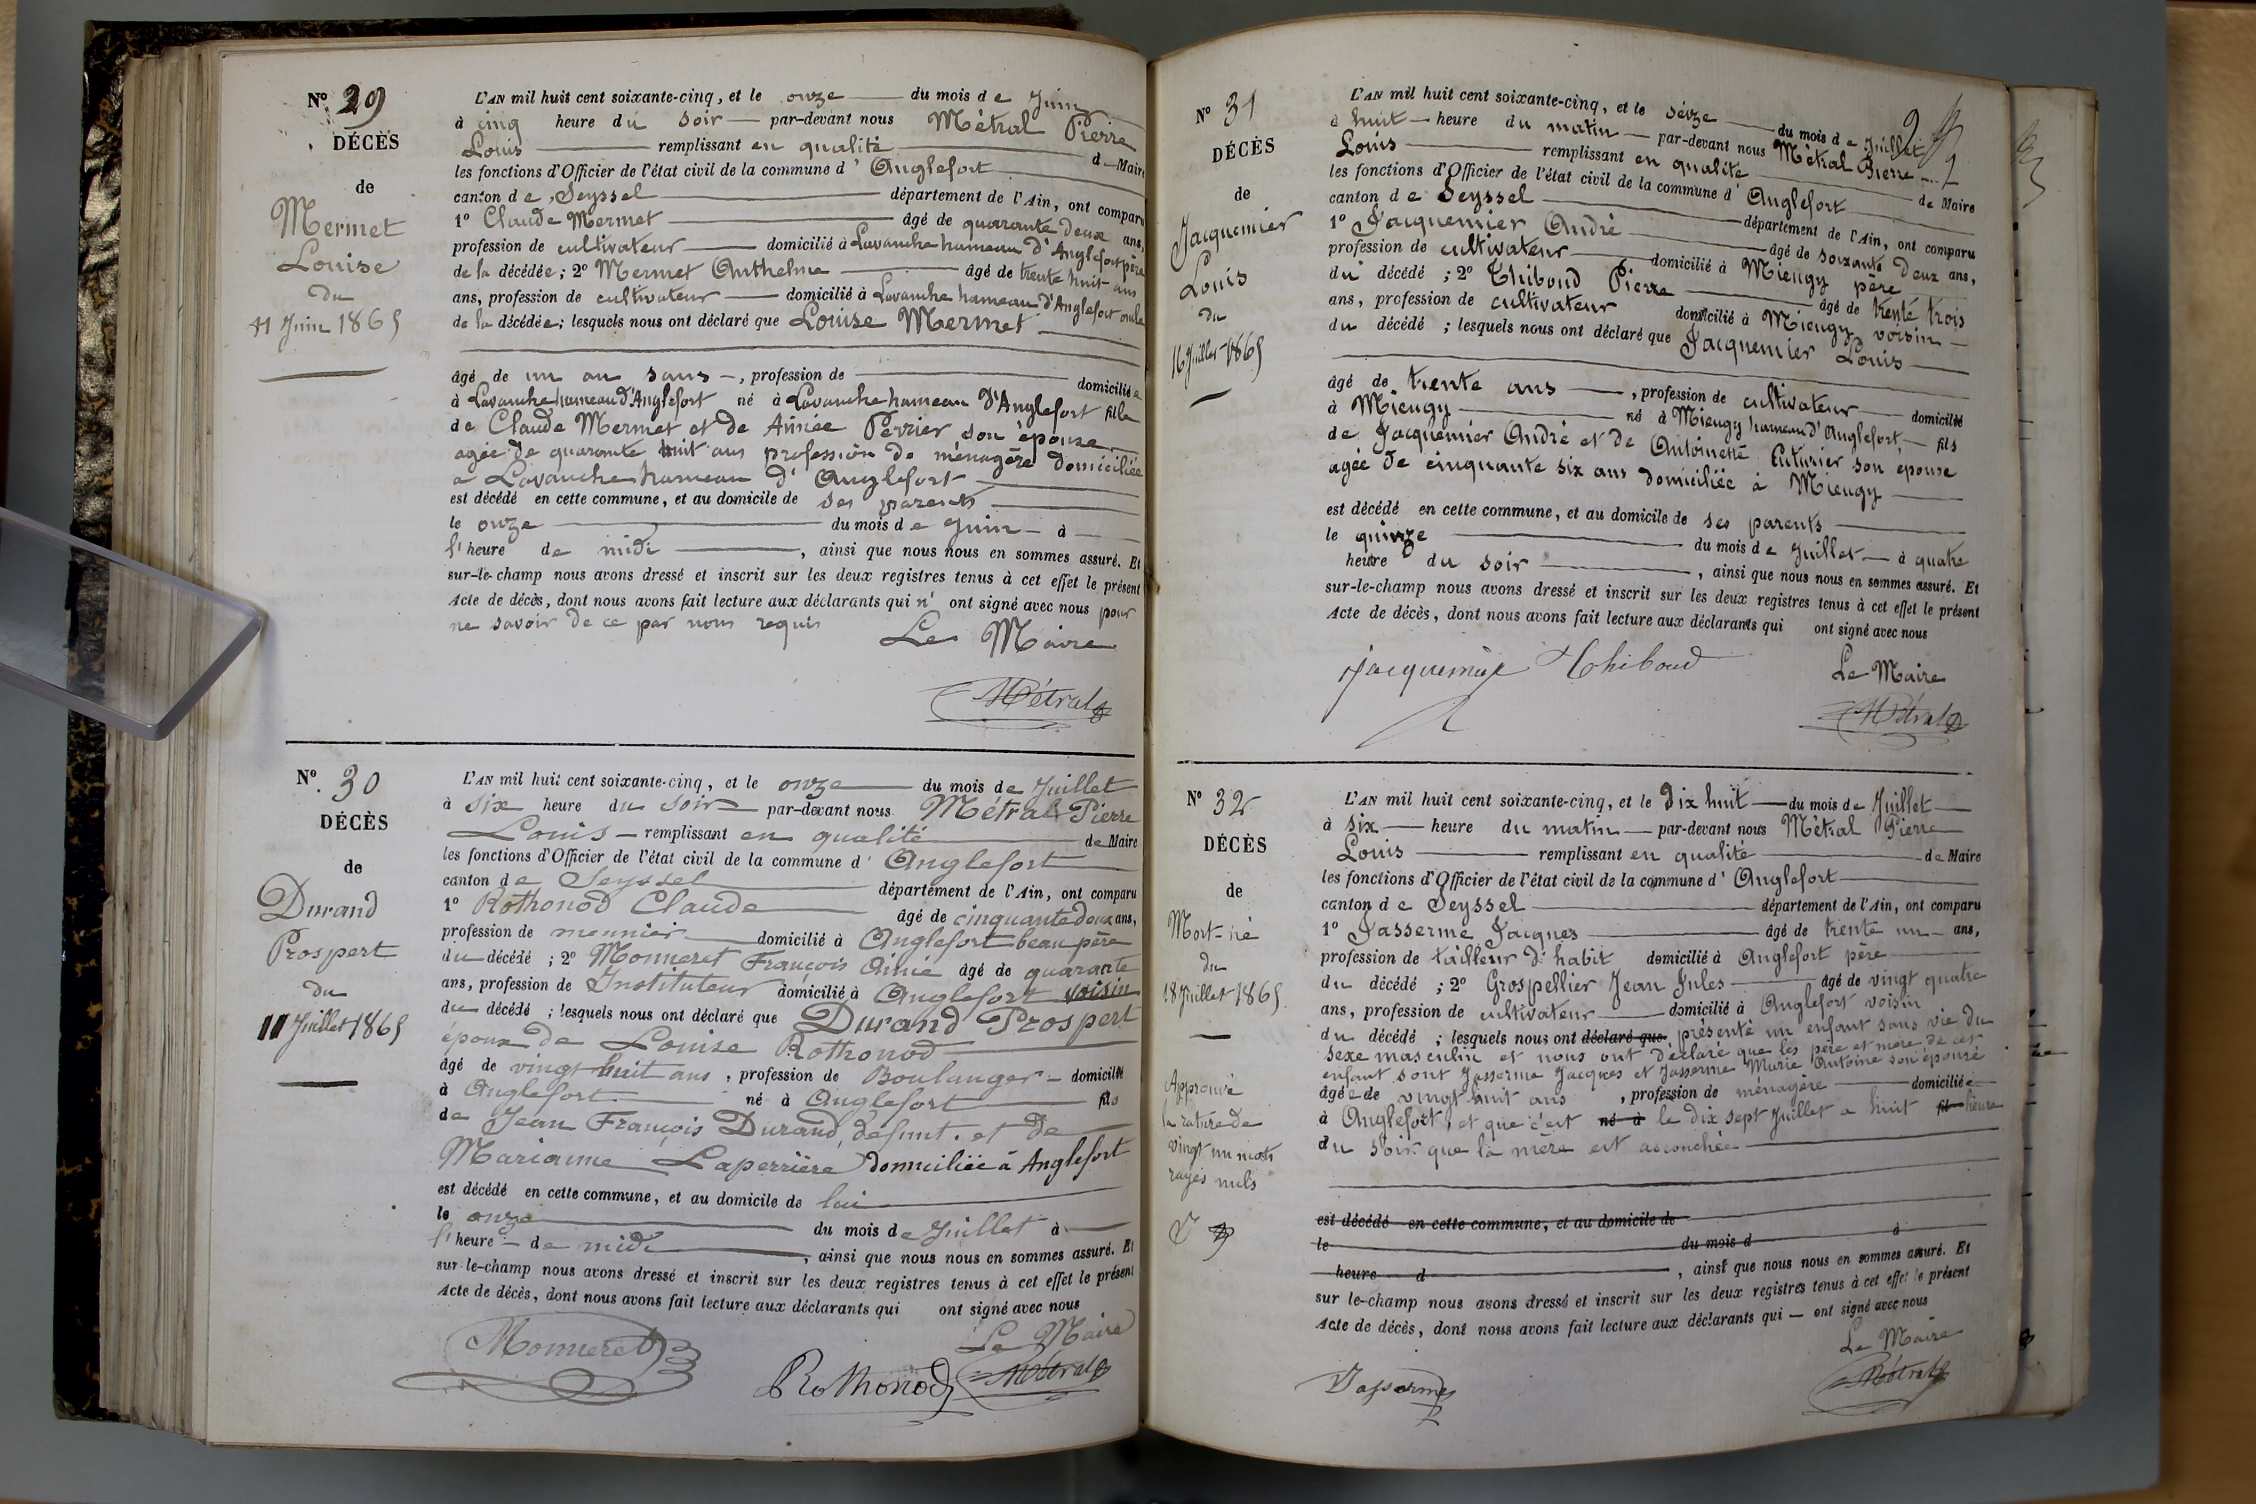 N° 29
DÉCÈS
de
Mermet
Louise
du
11 Juin 1865
L'AN mil huit cent soixante-cinq, et le onze du mois de Juin
à cinq heure du soir par-devant nous Métral Pierre
Louis remplissant en qualité de Maire
les fonctions d'Officier de l'état civil de la commune d'Anglefort
canton de Seyssel département de l'Ain, ont comparu
1° Claude Mermet âgé de quarante deux ans,
profession de cultivateur domicilié à Lavanche hameau d'Anglefort père
de la décédée ; 2° Mermet Anthelme âgé de trente huit ans
ans, profession de cultivateur domicilié à Lavanche hameau d'Anglefort oncle
de la décédée ; lesquels nous ont déclaré que Louise Mermet
âgé de un an sans , profession de domiciliée
à Lavanche hameau d'Anglefort né à Lavanche hameau d'Anglefort fille
de Claude Mermet et de Aimée Perrier son épouse
agée de quarante huit ans profession de ménagère domiciliée
a Lavanche hameau d'Anglefort
est décédé en cette commune, et au domicile de ses parents
le onze du mois de Juin à
l'heure de midi , ainsi que nous nous en sommes assuré. Et
sur-le-champ nous avons dressé et inscrit sur les deux registres tenus à cet effet le présent
Acte de décès, dont nous avons fait lecture aux déclarants qui n' ont signé avec nous pour
ne savoir de ce par nous requis Le Maire
Métral
N° 30
DÉCÈS
de
Durand
Prospert
du
11 Juillet 1865
L'AN mil huit cent soixante-cinq, et le onze du mois de Juillet
à six heure du soir par-devant nous Métral Pierre
Louis remplissant en qualité de Maire
les fonctions d'Officier de l'état civil de la commune d'Anglefort
canton de Seyssel département de l'Ain, ont comparu
1° Rothonod Claude âgé de cinquante deux ans,
profession de meunier domicilié à Anglefort beau père
du décédé ; 2° Monneret François Aimé âgé de quarante
ans, profession de Instituteur domicilié à Anglefort voisin
du décédé ; lesquels nous ont déclaré que Durand Prospert
époux de Louise Rothonod
âgé de vingt huit ans , profession de Boulanger domicilié
à Anglefort né à Anglefort fils
de Jean François Durand, défunt. et de
Marianne Laperrière domiciliée à Anglefort
est décédé en cette commune, et au domicile de lui
le onze du mois de Juillet à
l'heure de midi , ainsi que nous nous en sommes assuré. Et
sur-le-champ nous avons dressé et inscrit sur les deux registres tenus à cet effet le présent
Acte de décès, dont nous avons fait lecture aux déclarants qui ont signé avec nous
Le Maire
Monneret Rothonod Métral
N° 31
DÉCÈS
de
Jacquemier
Louis
du
16 Juillet 1865
L'AN mil huit cent soixante-cinq, et le séize du mois de Juillet
à huit heure du matin par-devant nous Métral Pierre
Louis remplissant en qualité de Maire
les fonctions d'Officier de l'état civil de la commune d'Anglefort
canton de Seyssel département de l'Ain, ont comparu
1° Jacquemier André âgé de soixante deux ans,
profession de cultivateur domicilié à Mieugy père
du décédé ; 2° Thiboud Pierre âgé de trente trois
ans, profession de cultivateur domicilié à Mieugy voisin
du décédé ; lesquels nous ont déclaré que Jacquemier Louis
âgé de trente ans , profession de cultivateur domicilié
à Mieugy né à Mieugy hameau d'Anglefort fils
de Jacquemier André et de Antoinette Cuturier son épouse
agée de cinquante six ans domiciliée à Mieugy
est décédé en cette commune, et au domicile de ses parents
le quinze du mois de Juillet à quatre
heure du soir , ainsi que nous nous en sommes assuré. Et
sur-le-champ nous avons dressé et inscrit sur les deux registres tenus à cet effet le présent
Acte de décès, dont nous avons fait lecture aux déclarants qui ont signé avec nous
Jacquemier Thiboud Le Maire
Métral
N° 32
DÉCÈS
de
Mort-né
du
18 Juillet 1865
Approuvé
la rature de
vingt un mots
rayés nuls
L'AN mil huit cent soixante-cinq, et le dix huit du mois de Juillet
à six heure du matin par-devant nous Métral Pierre
Louis remplissant en qualité de Maire
les fonctions d'Officier de l'état civil de la commune d'Anglefort
canton de Seyssel département de l'Ain, ont comparu
1° Jasserme Jacques âgé de trente un ans,
profession de tailleur d'habit domicilié à Anglefort père
du décédé ; 2° Grospellier Jean Jules âgé de vingt quatre
ans, profession de cultivateur domicilié à Anglefort voisin
du décédé ; lesquels nous ont déclaré que présenté un enfant sans vie du
sexe masculin et nous ont déclaré que les père et mère de cet
enfant sont Jasserme Jacques et Jasserme Marie Antoine son épouse
âgée de vingt huit ans , profession de ménagère domiciliée
à Anglefort, et que c'est né à le dix sept Juillet a huit fil heure
du soir que la mère est accouchée
est décédé en cette commune, et au domicile de
le du mois d à
heure d , ainsi que nous nous en sommes assuré. Et
sur le-champ nous avons dressé et inscrit sur les deux registres tenus à cet effet le présent
Acte de décès, dont nous avons fait lecture aux déclarants qui ont signé avec nous
Le Maire
Jasserme Métral